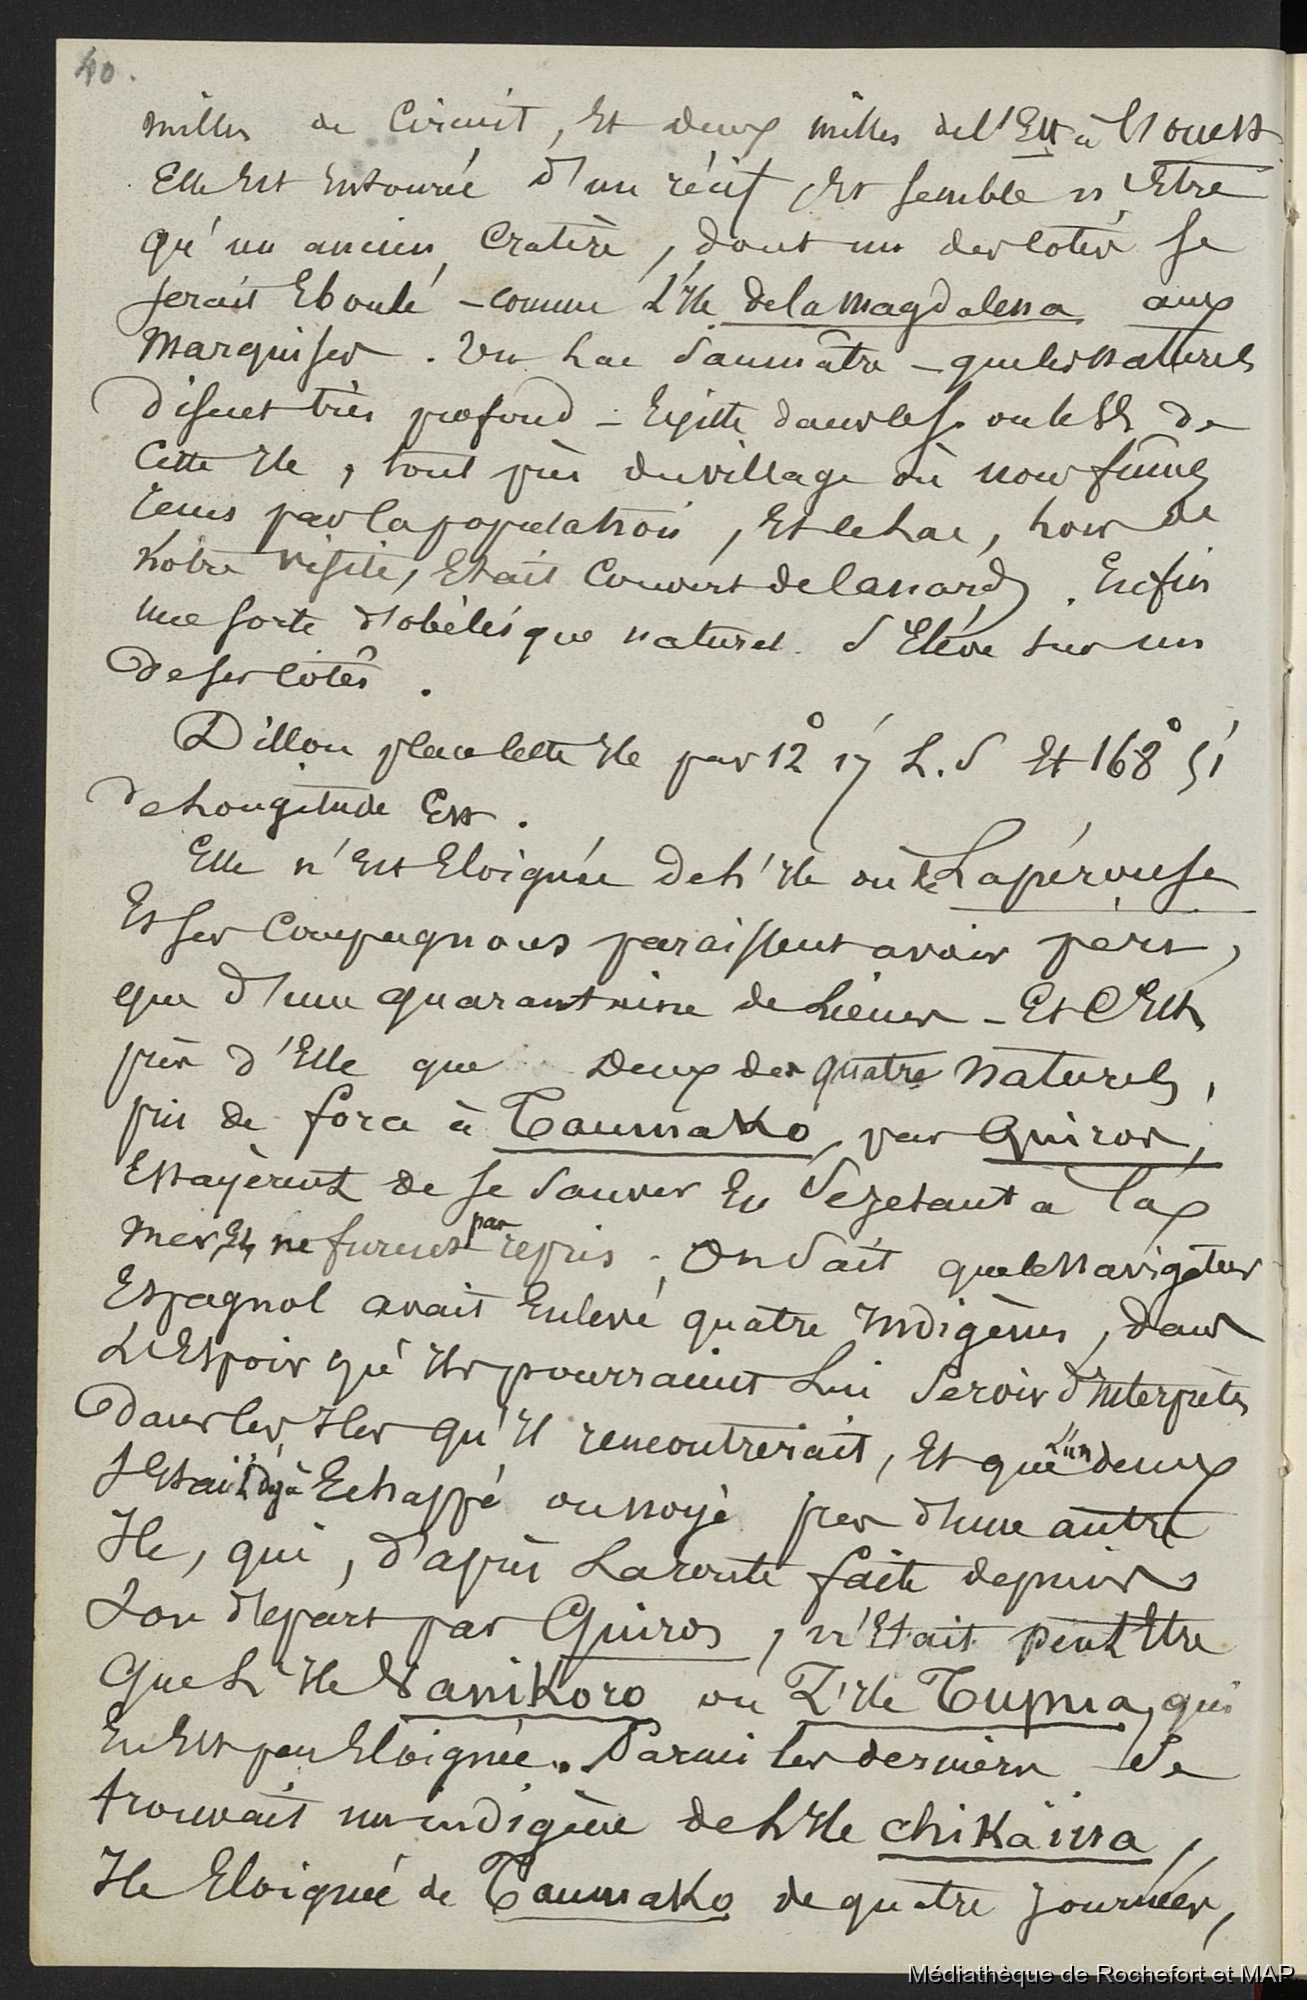 40.
milles de Circuit, Et deux milles de l'Est à l'ouest
Elle Est Entourée d'un récif, Et semble n'Etre
qu'un ancien Cratère, dont un des côtés se
serait Eboulé - comme L'Ile de la Magdalena aux
Marquises. Un Lac Saumâtre - que les Naturels
disent très profond - Existe dans le S. ou le SE de
Cette Ile, tout près du village où nous fûmes
reçus par la population, Et le Lac, hors de
Notre visite, Etait Couvert de Canards. Enfin
une sorte d'obélisque naturel s'Elève sur un
de ses côtés.
Dillon place Cette Ile par 12° 17' L. S Et 168° 51'
de Longitude Est.
Elle n'Est Eloignée de L'Ile où Lapérouse
Et ses Compagnons paraissent avoir péri,
que d'une quarantaine de Lieues - Et C'Est
près d'Elle que deux des quatre Naturels,
pris de force à Taumako, par Quiros,
Essayèrent de se Sauver En se jetant a la
mer, Et ne furent pas repris. On Sait que le Navigateur
Espagnol avait Enlevé quatre Indigènes, dans
L'Espoir qu'Ils pourraient Lui Servir d'Interprètes
dans les Iles qu'Il rencontrerait, Et que L'un deux
s'Etait déjà Echappé ou noyé près d'une autre
Ile, qui, d'après La route faite depuis
Son départ par Quiros, n'Etait peut Etre
que L'Ile Vanikoro ou L'Ile Tupua, qui
En Est peu Eloignée. Parmi les derniers Se
trouvait un indigène de L'Ile chikaïna,
Ile Eloignée de Taumako de quatre journées,
Médiathèque de Rochefort et MAP